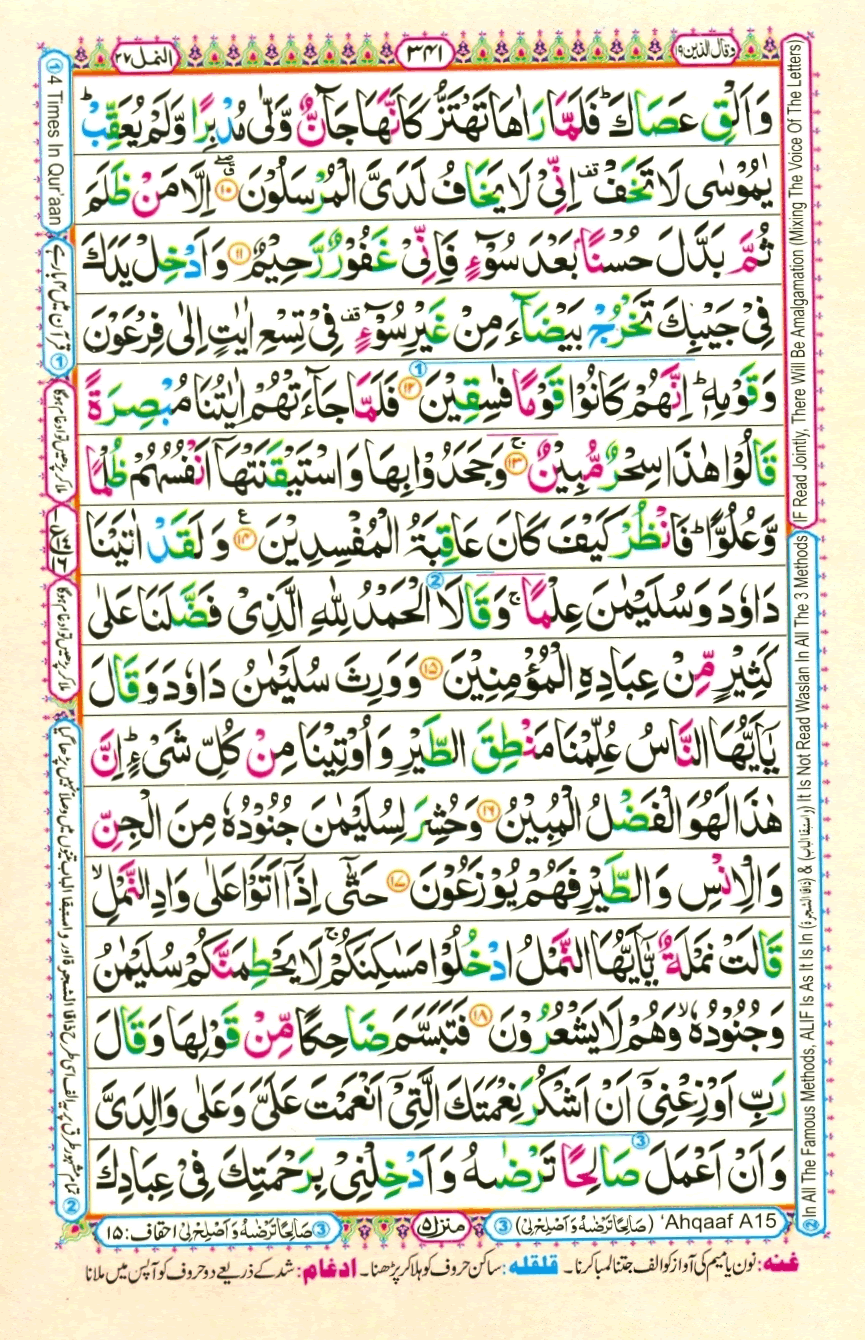 وقال الذين ۱۹
۳۴۱
النمل ۲۷
وَاَلْقِ عَصَاكَ ؕ فَلَمَّا رَاٰهَا تَهْتَزُّ كَاَنَّهَا جَآنٌّ وَّلّٰى مُدْبِرًا وَّلَمْ يُعَقِّبْ ؕ
يٰمُوْسٰى لَا تَخَفْ ۫ اِنِّىْ لَا يَخَافُ لَدَىَّ الْمُرْسَلُوْنَ ۱۰ اِلَّا مَنْ ظَلَمَ
ثُمَّ بَدَّلَ حُسْنًۢا بَعْدَ سُوْٓءٍ فَاِنِّىْ غَفُوْرٌ رَّحِيْمٌ ۱۱ وَاَدْخِلْ يَدَكَ
فِىْ جَيْبِكَ تَخْرُجْ بَيْضَآءَ مِنْ غَيْرِ سُوْٓءٍ ۫ فِىْ تِسْعِ اٰيٰتٍ اِلٰى فِرْعَوْنَ
وَقَوْمِهٖ ؕ اِنَّهُمْ كَانُوْا قَوْمًا فٰسِقِيْنَ ۱۲ فَلَمَّا جَآءَتْهُمْ اٰيٰتُنَا مُبْصِرَةً
قَالُوْا هٰذَا سِحْرٌ مُّبِيْنٌ ۱۳ وَجَحَدُوْا بِهَا وَاسْتَيْقَنَتْهَاۤ اَنْفُسُهُمْ ظُلْمًا
وَّعُلُوًّا ؕ فَانْظُرْ كَيْفَ كَانَ عَاقِبَةُ الْمُفْسِدِيْنَ ۱۴ وَلَقَدْ اٰتَيْنَا
دَاوٗدَ وَسُلَيْمٰنَ عِلْمًا ۚ وَقَالَا الْحَمْدُ لِلّٰهِ الَّذِىْ فَضَّلَنَا عَلٰى
كَثِيْرٍ مِّنْ عِبَادِهِ الْمُؤْمِنِيْنَ ۱۵ وَوَرِثَ سُلَيْمٰنُ دَاوٗدَ وَقَالَ
يٰۤاَيُّهَا النَّاسُ عُلِّمْنَا مَنْطِقَ الطَّيْرِ وَاُوْتِيْنَا مِنْ كُلِّ شَىْءٍ ؕ اِنَّ
هٰذَا لَهُوَ الْفَضْلُ الْمُبِيْنُ ۱۶ وَحُشِرَ لِسُلَيْمٰنَ جُنُوْدُهٗ مِنَ الْجِنِّ
وَالْاِنْسِ وَالطَّيْرِ فَهُمْ يُوْزَعُوْنَ ۱۷ حَتّٰٓى اِذَاۤ اَتَوْا عَلٰى وَادِ النَّمْلِ ۙ
قَالَتْ نَمْلَةٌ يّٰۤاَيُّهَا النَّمْلُ ادْخُلُوْا مَسٰكِنَكُمْ ۚ لَا يَحْطِمَنَّكُمْ سُلَيْمٰنُ
وَجُنُوْدُهٗ ۙ وَهُمْ لَا يَشْعُرُوْنَ ۱۸ فَتَبَسَّمَ ضَاحِكًا مِّنْ قَوْلِهَا وَقَالَ
رَبِّ اَوْزِعْنِىْۤ اَنْ اَشْكُرَ نِعْمَتَكَ الَّتِىْۤ اَنْعَمْتَ عَلَىَّ وَعَلٰى وَالِدَىَّ
وَاَنْ اَعْمَلَ صَالِحًا تَرْضٰىهُ وَاَدْخِلْنِىْ بِرَحْمَتِكَ فِىْ عِبَادِكَ
③ (صَالِحًا تَرْضٰىهُ وَاَصْلِحْ لِىْ) 'Ahqaaf A15
منزل ۵
③ صَالِحًا تَرْضٰىهُ وَاَصْلِحْ لِىْ احقاف: ۱۵
غنہ: نون یا میم کی آواز کو الف جتنا لمبا کرنا۔ قلقلہ: ساکن حروف کو ہلا کر پڑھنا۔ ادغام: شد کے ذریعے دو حروف کو آپس میں ملانا
IF Read Jointly, There Will Be Amalgamation (Mixing The Voice Of The Letters)
② In All The Famous Methods, ALIF Is As It Is In (ذاقا الشجرة) & (واستبقا الباب) It Is Not Read Waslan In All The 3 Methods
① 4 Times In Qur'aan
① قرآن میں ۴ بار ہے
ملا کر پڑھیں تو ادغام ہوگا
ملا کر پڑھیں تو ادغام ہوگا